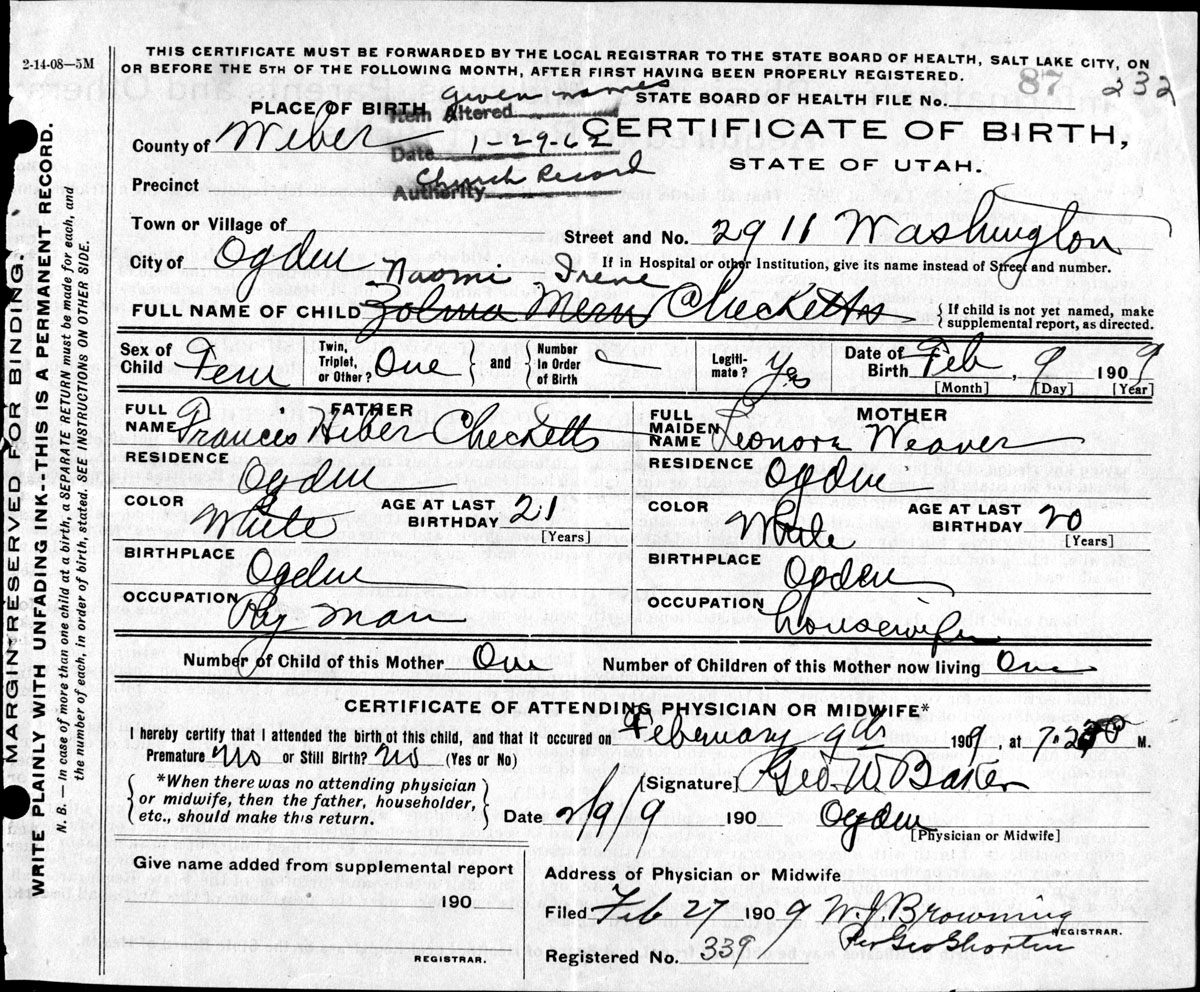 2-14-08—5M
THIS CERTIFICATE MUST BE FORWARDED BY THE LOCAL REGISTRAR TO THE STATE BOARD OF HEALTH, SALT LAKE CITY, ON
OR BEFORE THE 5TH OF THE FOLLOWING MONTH, AFTER FIRST HAVING BEEN PROPERLY REGISTERED.
87 232
PLACE OF BIRTH
given names
Item Altered
STATE BOARD OF HEALTH FILE No.
County of Weber
Date 1-29-62
CERTIFICATE OF BIRTH,
STATE OF UTAH.
Precinct
Church Record
Authority
Town or Village of
Street and No. 2911 Washington
City of Ogden
If in Hospital or other Institution, give its name instead of Street and number.
Naomi Irene
FULL NAME OF CHILD Zolma Mern Checketts
{ If child is not yet named, make
supplemental report, as directed.
Sex of Child Fem
Twin, Triplet, or Other? One } and { Number In Order of Birth
Legiti-mate? Yes
Date of Birth Feb, 9 1909
[Month] [Day] [Year]
FATHER
FULL NAME Frances Heber Checketts
RESIDENCE Ogden
COLOR White
AGE AT LAST BIRTHDAY 21
[Years]
BIRTHPLACE Ogden
OCCUPATION Ry man
MOTHER
FULL MAIDEN NAME Leonora Weaver
RESIDENCE Ogden
COLOR White
AGE AT LAST BIRTHDAY 20
[Years]
BIRTHPLACE Ogden
OCCUPATION housewife
Number of Child of this Mother One Number of Children of this Mother now living One
CERTIFICATE OF ATTENDING PHYSICIAN OR MIDWIFE*
I hereby certify that I attended the birth of this child, and that it occured on February 9th 1909, at M.
Premature No or Still Birth? No (Yes or No)
{ *When there was no attending physician
or midwife, then the father, householder,
etc., should make this return. }
[Signature] Geo. W. Baker
Date 2/9/9 190 Ogden
[Physician or Midwife]
Give name added from supplemental report
190
REGISTRAR.
Address of Physician or Midwife
Filed Feb 27 1909 W. J. Browning
REGISTRAR.
Per Geo Shorten
Registered No. 339
MARGIN RESERVED FOR BINDING.
WRITE PLAINLY WITH UNFADING INK--THIS IS A PERMANENT RECORD.
N. B. — In case of more than one child at a birth, a SEPARATE RETURN must be made for each, and
the number of each, in order of birth, stated. SEE INSTRUCTIONS ON OTHER SIDE.